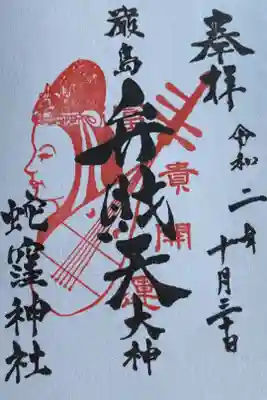 奉拝
令和二年十月三十日
厳島
弁財天
大神
貴開運
蛇窪神社